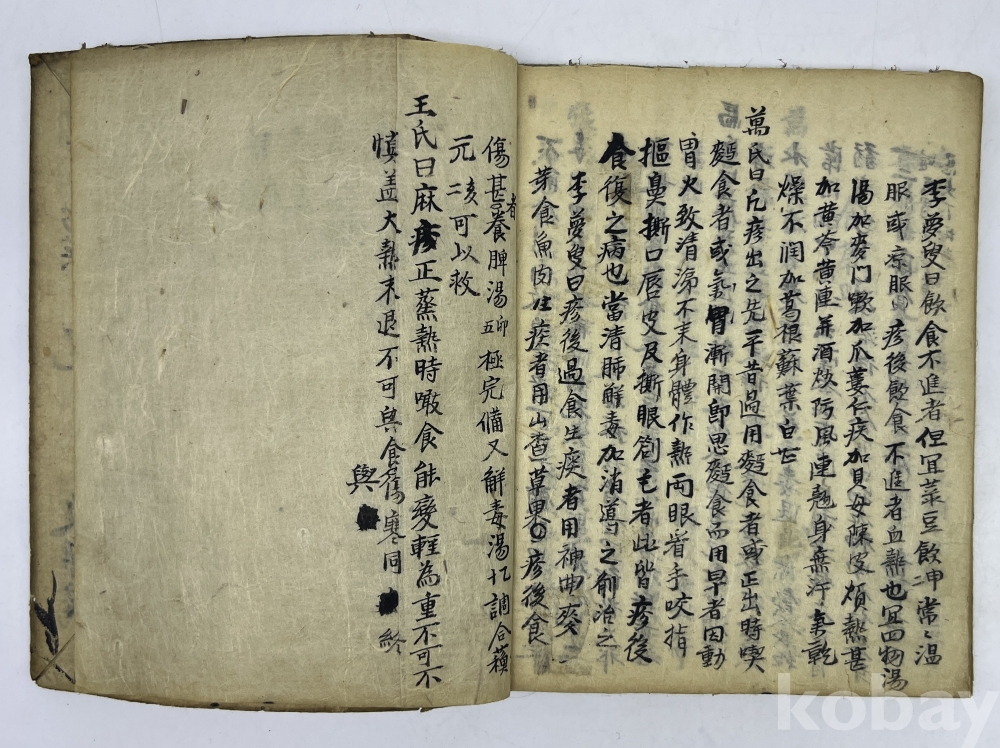 李夢叟曰飮食不進者但宜菉豆飮冲常〻溫
服或凉服 疹後飮食不進者血熱也宜四物湯
湯加麥門 嗽加瓜蔞仁痰加貝母陳皮煩熱甚
加黃芩黃連並酒炒防風連翹身無汗氣乾
燥不润加葛根蘇葉白芷
萬氏曰凡疹出之先平昔過用麪食者或正出時喫
麪食者或氣胃漸開卽思麪食而用早者因動
胃火致清涕不末身體作熱両眼看手咬指
摳鼻撕口唇皮及撕眼劄毛者此皆疹後
食傷之病也當清肺解毒加消導之劑治之
李夢叟曰疹後過食生痰者用神曲麥
芽食魚肉生痰者用山查草果〇疹後食
傷甚者養脾湯五卯極完備又解毒湯九調合蘓
元二亥可以救
王氏曰麻疹正蒸熱時噉食能變輕為重不可不
愼盖大熱未退不可與食傷寒同 終
與
kobay